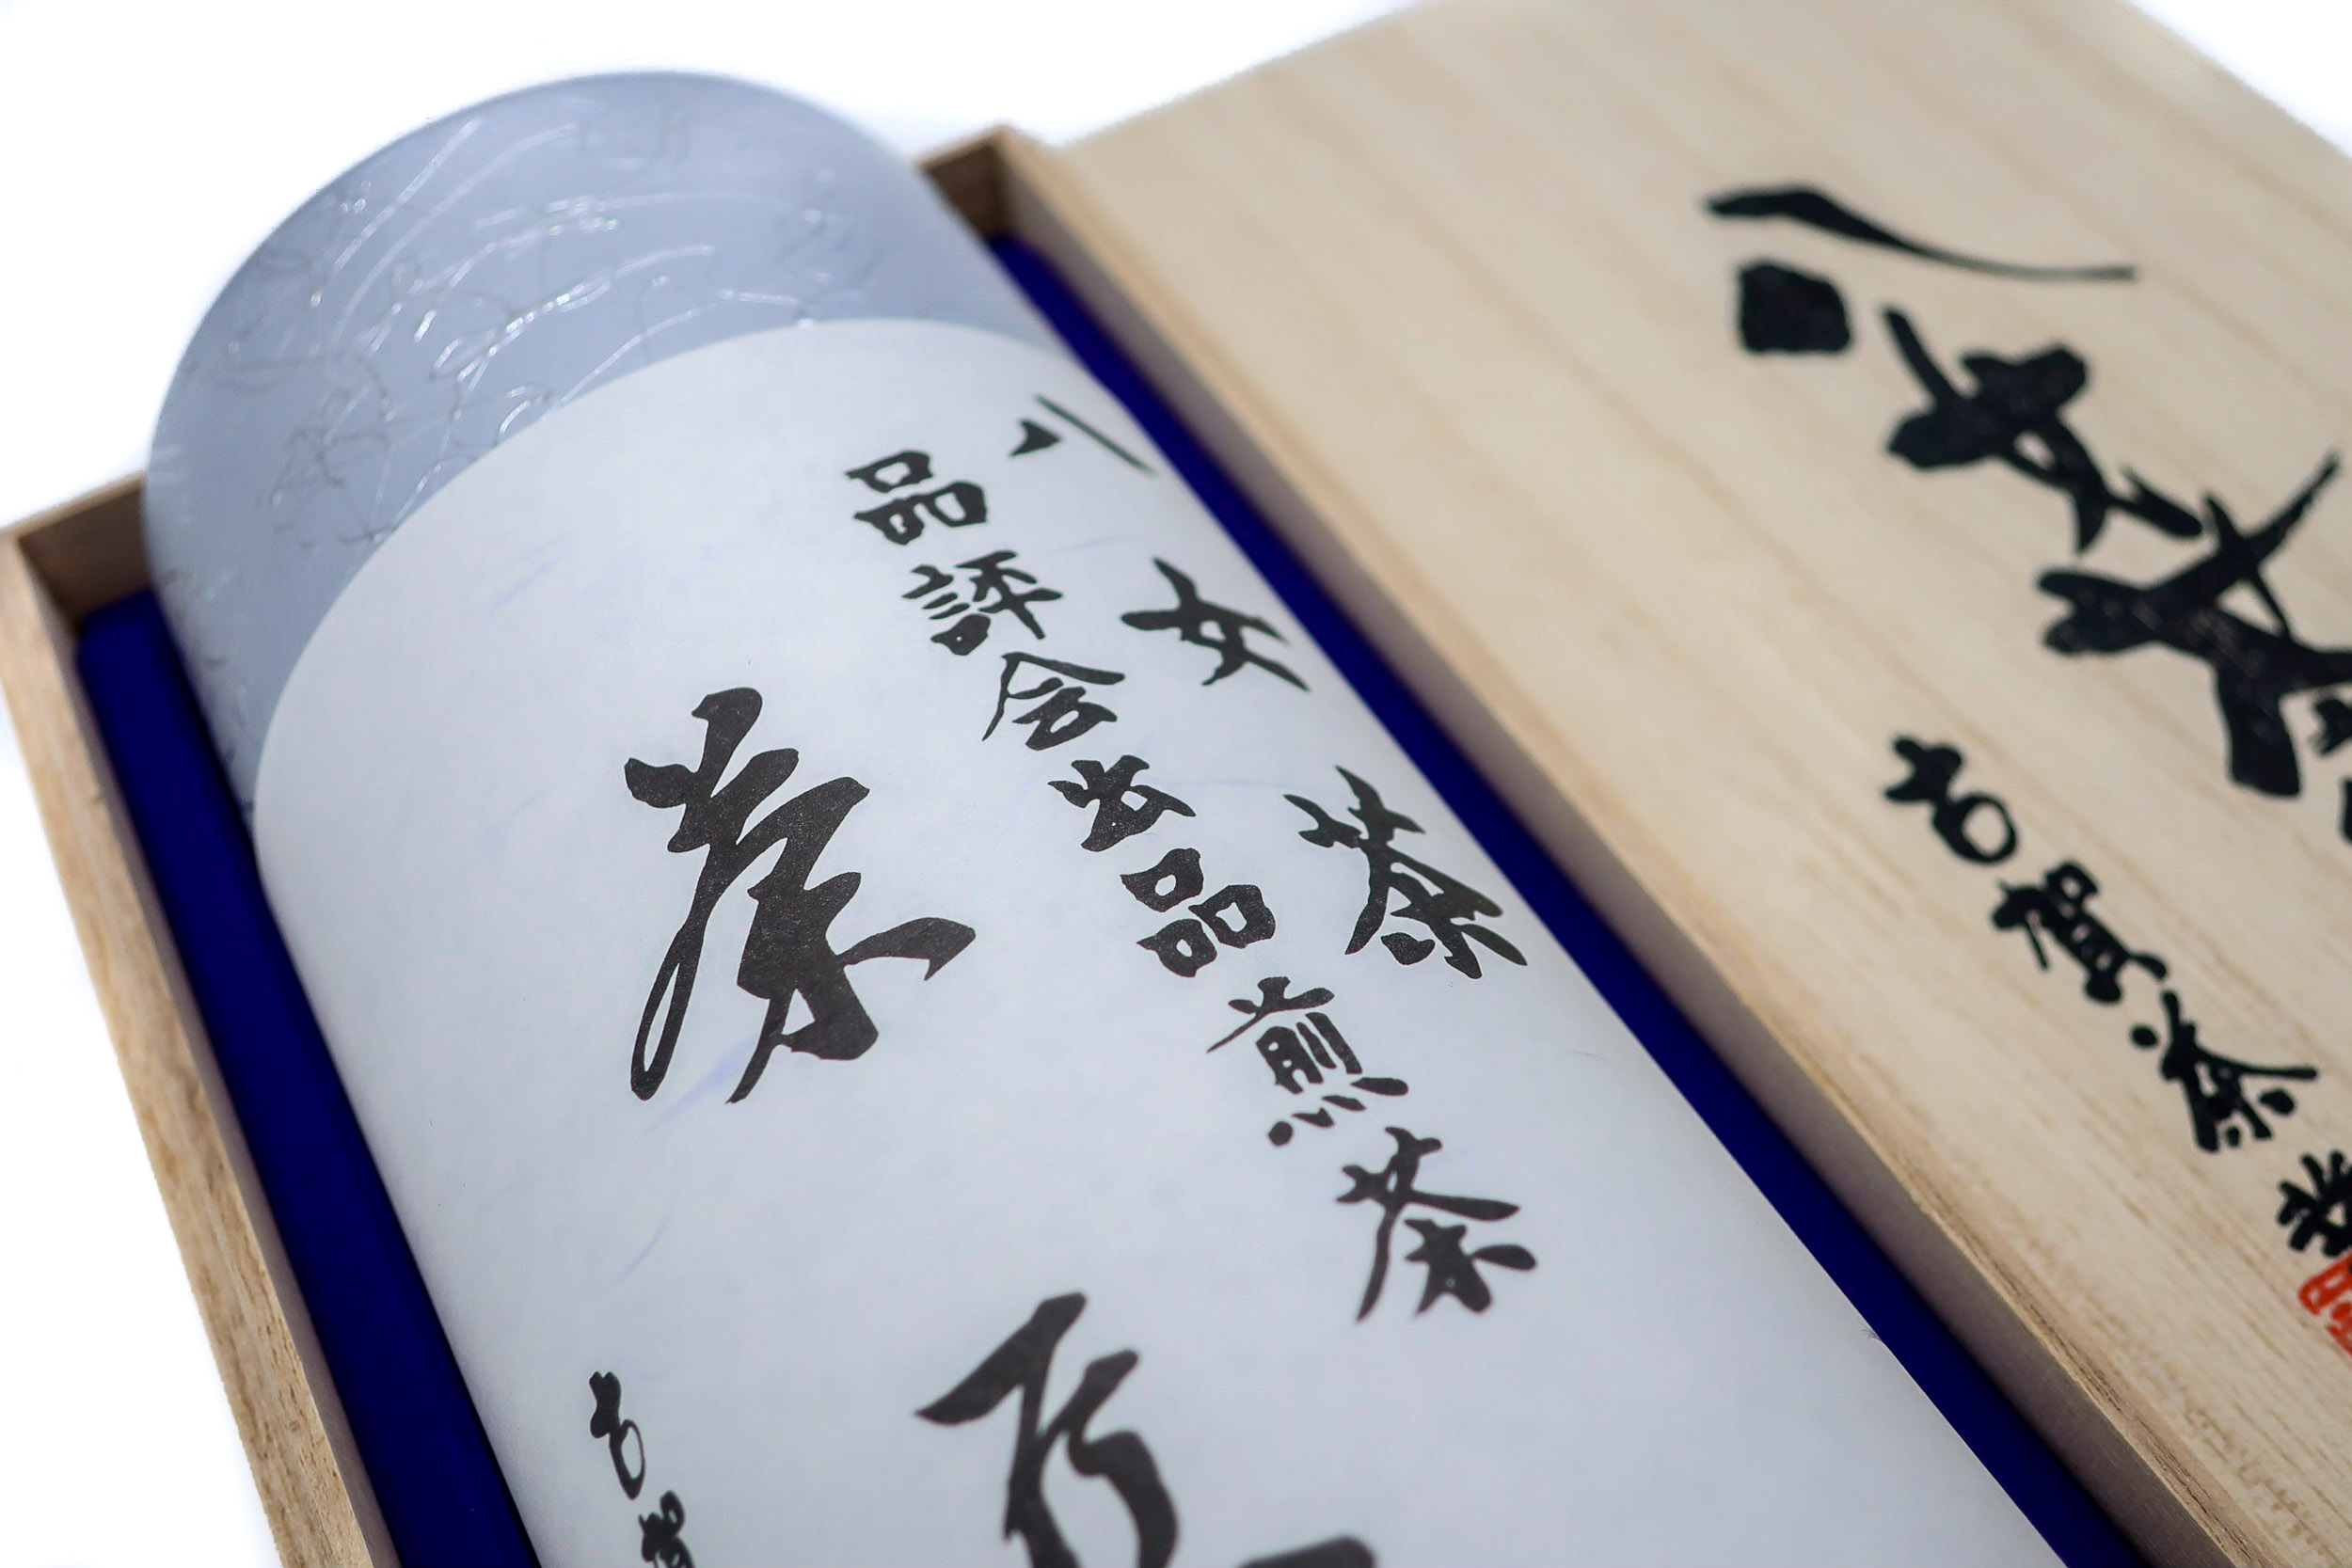 八女茶
品評会出品煎茶
茶
古賀
八女茶
古賀茶業